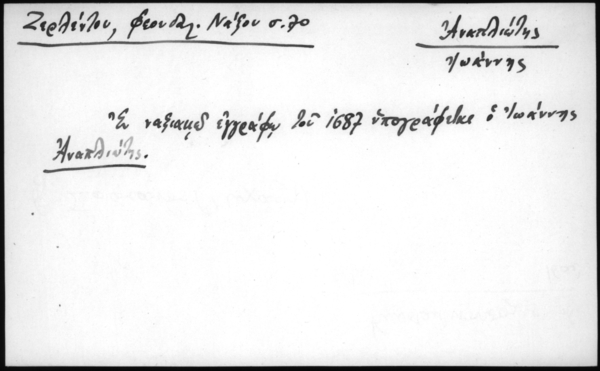 Ζερλέντου, Φεουδαλ. Νάξου σ. 70
Ἀναπλιώτης
Ἰωάννης
Ἐν ναξιακῷ ἐγγράφῳ τοῦ 1687 ὑπογράφεται ὁ Ἰωάννης
Ἀναπλιώτης.